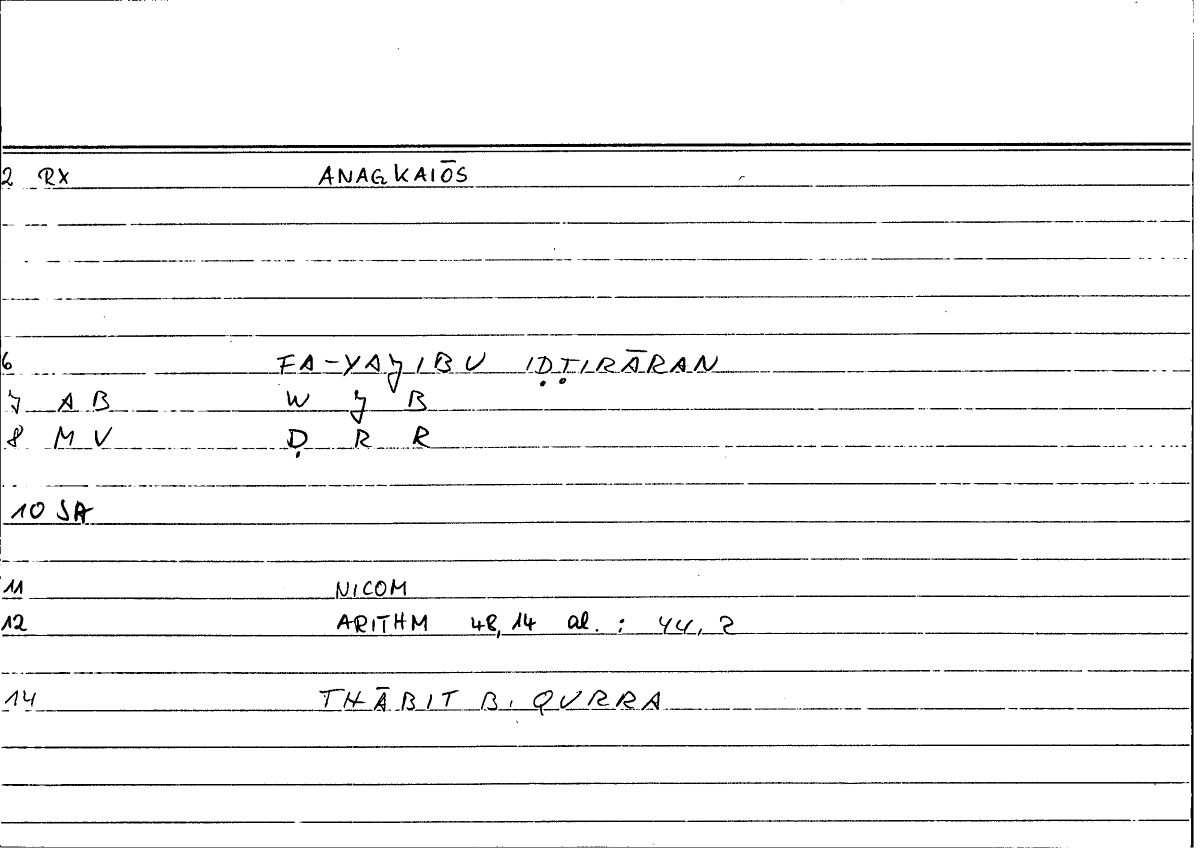 2 RX ANAGKAIŌS
6 FA-YAJIBU IḌṬIRĀRAN
7 AB W J B
8 MV Ḍ R R
10 SA
11 NICOM
12 ARITHM 48,14 al. : 44, 2
14 THĀBIT B. QURRA